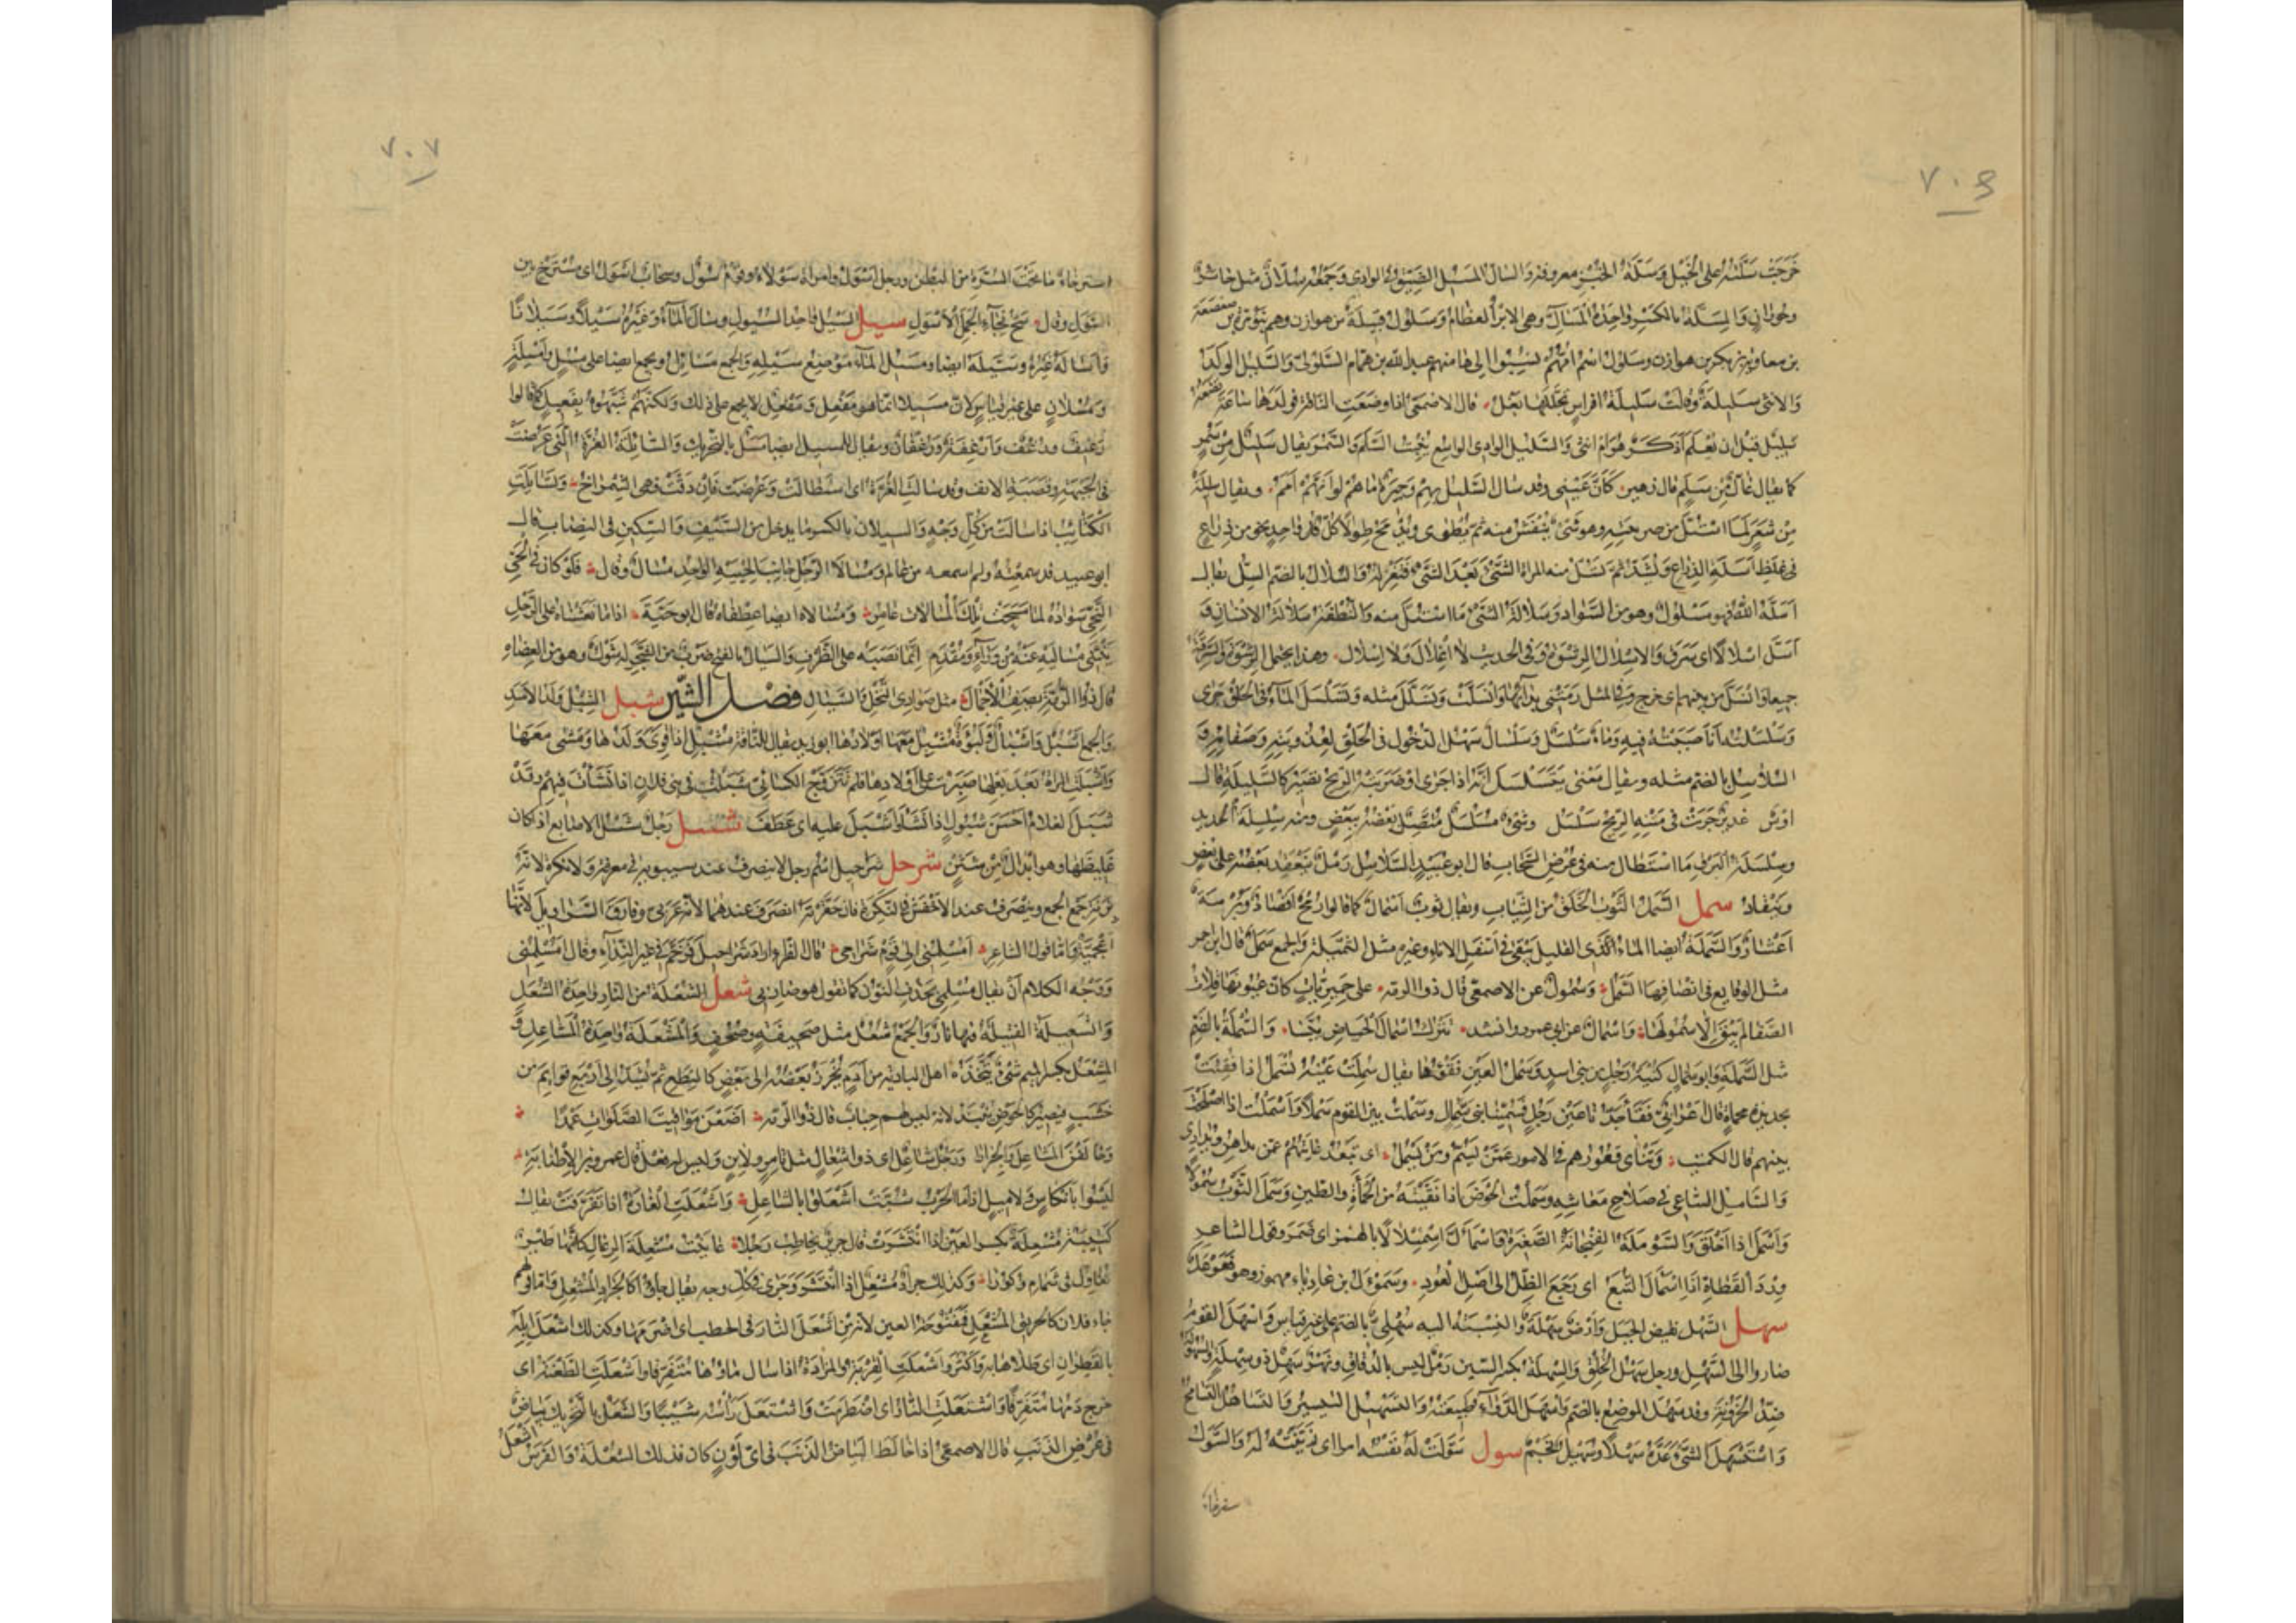 ٧٠٦
خَرَجَتْ سَلَّتُه على الخَيْل وَسَلَّةُ الخُبْزِ معروفة وَالسَالُّ المَسِيْل الضَيِّقُ فى الوادى وَجَمْعُه سُلَّانٌ مثل حائرٍ
وحُورَانٍ وَالمِسَلَّةُ بالكَسْرِ وَاحِدَةُ المَسَالِّ وهى الاِبَرُ العظَامُ وَسَلُولُ قبِيلَةٌ من هوازن وهم بَنُو مُرّة بن صَعْصَعَة
بن معاوية بن بكر بن هوازن وسلول اسْم اُمّهُمْ نُسِبُوا اليها منهم عبد الله بن همّام السَّلولىّ وَالسَّليل الولَدُ
وَالانثى سَلِيلَة وقالت سَلِيلَةُ افراسٍ تَجَلَّلَها بَغْل قال الاصمعىّ اذا وضَعَتِ الناقة فولَدُها ساعَةَ تَضَعُه
سَلِيْل قبْل ان يُعْلَم اَذَكَر هُوَ ام انثى وَالسَّليل الوادى الواسِع يُنْبِتُ السَلَم وَالسَّمُر يقال سَلِيْلٌ مِنْ سَمُرٍ
كما يقال غالٌّ مِنْ سَلَمٍ قال زهير كَأَنَّ عَيْنِى وقد سال السَّليل بِهِمْ وَجِيرَةٌ مَا هُمُ لَوْ اَنَّهُمْ اَمَمُ ويقال سليلَة
مِنْ شَعَرٍ لمَا اسْتُلَّ من ضريبته وهو شَىْءٌ يُنْفَشُ منه ثم يُطْوَى ويُدْمَجُ طِوَالًا كُلُّ وَاحِدٍ نحو من ذراع
فى غِلَظِ اَسَلَةِ الذِراعِ وَيُشَدُّ ثم تَسُلُّ منه المراةُ الشَّىْءَ بَعْدَ الشَّىْءِ فَتَغْزِلُه وَالسُلَالُ بالضم السِّلُّ يقال
اَسَلَّهُ اللّٰهُ فهو مَسْلُولٌ وهو من الشَّواذِ وَسُلَالَةُ الشَّىْءِ مَا اسْتُلَّ منه وَالنُّطْفَةُ سُلَالَةُ الانسان وَ
اَسَلَّ اِسْلَالًا اى سَرَق وَالاِسْلَالُ الرِشْوَة وفى الحديث لَا اِغْلَالَ وَلَا اِسْلَال وهذا يحتمل الرِشْوَةَ وَالسَرِقَةَ
جميعًا وَانْسَلَّ من بينهم اى خرج وفى المثل رَمَتْنِى بِدَائِهَا وَانْسَلَّتْ وَتَسَلَّلَ مثله وَتَسَلْسَلَ المَاءُ فى الحَلْق جَرَى
وَسَلْسَلْتُه اَنَا صَبَبْتُهُ فيه وَمَاءٌ سَلْسَلٌ وَسَلْسَالٌ سَهْل الدخُول فى الحَلْقِ لِعُذُوبَتِه وَصَفَائِه وَ
السُلَاسِل بالضم مثله ويقال مَعْنَى يَتَسَلْسَلُ اَنّه اذا جَرَى اَوْ ضَرَبَتْهُ الرِيحُ يَصِيْر كالسِّلْسِلَةِ قال
اوْسٌ غَدِيرٌ جَرَتْ فى مَتْنِهِ الرِيحُ سَلْسَلُ وشَىْءٌ مُسَلْسَلٌ مُتَّصِل بَعْضُه بِبَعْضٍ ومنه سِلْسِلَةُ الحديد
وسِلْسِلَةُ البَرْق مَا اسْتَطال منه فى عُرْضِ السَّحَابِ قال ابو عبيدٍ السَّلَاسِل رَمْلٌ يَتَعَقَّد بَعْضُه على بَعْضٍ
وَيَنْقَادُ سمل السَّمَلُ الثَّوْبُ الخَلَقُ من الثِّيَابِ ويقال ثوبٌ اَسْمَالٌ كما قالوا رُمْحٌ اَقْصَادٌ وَبُرْمَةٌ
اَعْشَارٌ وَالسَّمَلَة ايضا الماءُ القليل يَبْقَى فى اَسْفَلِ الاناءِ وغيره مثل الثَّمِيلَةِ وَالجمع سَمَلٌ قال ابن احمر
مثل الوقايع فى انصافِهَا السَّمَل وَسُمُولٌ عن الاصمعىّ قال ذو الرمّة على حِمْيَرِيّاتٍ كأنّ عيونَهَا قِلَاتُ
الصَّفَا لَمْ يَبْقَ اِلَّا سُمُولُهَا وَاَسْمَالٌ عن ابى عمرو وانشد يَتْرُكُ اَسْمَالَ الحِيَاضِ يُبَّسَا وَالسُمْلَةُ بالضَم
مثل السَّمَلَةِ وابو سَمّالٍ كُنْيَةُ رَجُلٍ من بنى اسدٍ وَسَمْلُ العَيْنِ فَقْؤُهَا يقال سُمِلَتْ عَيْنُهُ تُسْمَل اذا فُقِئَتْ
بحديدةٍ محماةٍ قال اَعْرَابِىّ فَقَأَ جَدُّنَا عَيْنَ رَجُلٍ فَسُمِّينَا بَنِى سَمّالٍ وسَمَلْتُ بين القوم سَمْلًا وَاَسْمَلْتُ اذا اَصْلَحْتَ
بينهم قال الكميت وَتَنْأَى قُعُورُهُمُ فى الامور عَمَّنْ يَسُمُّ وَمَنْ يَسْمُلُ اى تَبْعُد غايَتُهُمْ عَمّن يداهِن ويُدَارِى
وَالسَامِلُ السَّاعِى فى صَلَاحِ مَعَاشِه وسَمَلْتُ الحَوْضَ اذا نَقَّيْتَهُ من الحَمْأَةِ وَالطينِ وَسَمَلَ الثَّوْبُ سُمُولًا
وَاَسْمَلَ اذا اَخْلَقَ وَالسَّوْمَلَةُ الفِنْجَانَةُ الصَّغِيرَة وَاسْمَأَلَّ اسْمِئْلَالًا بالهمز اى ضَمَر وقول الشاعر
وِرْدَ القَطَاةِ اِذَا اسْمَأَلَّ التُّبَّعُ اى رَجَعَ الظِلُّ الى اَصْلِ العُودِ وسَمَوْءَل بن عادِيَاءَ مهموز وهو فَعَوْلَل
سهل السَّهْل نقيض الجبَل وَاَرْضٌ سَهْلَةٌ وَالنِسْبَةُ اليه سُهْلِىٌّ بالضم على غير قياس وَاَسْهَلَ القومُ
صاروا الى السَّهْلِ ورجل سَهْلُ الخُلْقِ وَالسِهْلَةُ بكسر السّين رَمْلٌ ليس بالدُقَاقِ ونَهْرٌ سَهِلٌ ذو سِهْلَةٍ وَالسُهُولَةُ
ضِدُّ الحُزُونَةِ وقد سَهُلَ الموضِعُ بالضم وَاَسْهَلَ الدَّوَاءُ طَبِيعَتَهُ وَالتَّسْهِيلُ التَّيْسِيرُ وَالتَسَاهُل التَسَامُحُ
وَاسْتَسْهَلَ الشَّىْءَ عَدَّهُ سَهْلًا وسُهَيْلٌ نَجْمٌ سول سَوَّلَتْ لَهُ نَفْسُهُ امرًا اى زَيَّنَتْهُ له وَالسَّوَلُ
استرخاءُ
٧٠٧
استرخاءُ مَا تَحْتَ السُّرَّةِ من البَطْن ورجل اَسْوَلُ وامراة سَوْلَاءُ وقوم سُوْلٌ وسحاب اَسْوَلُ اى مُسْتَرْخٍ بَيّن
السَّوَلِ وقال سَحَّ نِجَاءَ الحَمَلِ الاَسْوَلِ سيل السَّيْل وَاحِد السُّيولِ وسَالَ المَاءُ وَغَيْرُه سَيْلًا وسَيَلَانًا
وَاَسَالَهُ غَيْرُهُ وسَيَّلَهُ ايضا ومَسِيْل المَاءِ مَوْضِع سَيْلِهِ وَالجمع مَسَائِل ويجمع ايضا على مُسُلٍ وَاَمْسِلَةٍ
وَمُسْلَانٍ على غير قياسٍ لانّ مَسِيلًا انّما هو مَفْعِل وَمَفْعِل لا يجمع على ذلك وَلكنّهُمْ شَبَّهُوهُ بِفَعِيلٍ كما قالوا
رَغِيف ورُغُف وَاَرْغِفَة ورُغْفَان ويقال للمسيل ايضا مَسَل بالتحريك وَالسَائِلَة الغُرَّة الّتى عَرُضَتْ
فى الجَبْهَةِ وقَصَبَةِ الانف وقد سالَتِ الغُرَّةُ اى اسْتَطَالَتْ وَعَرُضَتْ فَاِنْ دَقَّتْ فهى الشِمْرَاخُ وَتَسَايَلَتِ
الكَتَائِبُ اذا سالَتْ من كُلّ وَجْهٍ وَالسيلان بالكسر ما يدخل من السَّيْفِ وَالسِكّينِ فى النِصَابِ قال
ابو عبيد قد سمعتُهُ ولم اسمعه من عالمٍ وَمُسَالَا الرَّجُلِ جانِبَا لِحْيَتِهِ الواحِدُ مُسَالٌ وقال فَلَوْ كانَ فى الحَىِّ
النَّجِىِّ سَوَادُهُ لما مَسَحَتْ تِلْكَ المُسَالَاتِ عَامِرُ وَمُسَالاه ايضا عِطْفاه قال ابو حَيَّةَ اذا ما تَغَشَّاهُ على الرَّحْلِ
يَنْثَنِى مُسَالَيْهِ عَنْهُ مِنْ وَرَاءٍ وَمُقْدَمِ اِنَّمَا نَصَبَه على الظَّرْفِ وَالسَيَالُ بالفتح ضَرْبٌ من الشَّجَرِ لَه شَوْكٌ وهو من العِضَاهِ
قال ذو الرُمَّةِ يَصِفُ الاَجْمَالَ مثل صَوَادِى النَّخْلِ وَالسَّيَالِ فصل الشّين شبل الشِبْل وَلَدُ الاَسَدِ
وَالجمع اَشْبُل وَاَشْبَالٌ وَلَبُؤَةٌ مُشْبِلٌ مَعَهَا اَوْلَادُهَا ابو زيد يقال للنَّاقَة مُشْبِل اذا قَوِىَ وَلَدُهَا وَمَشَى مَعَهَا
وَاَشْبَلَتِ المراةُ بَعْدَ بَعْلِهَا صَبَرَتْ على اَوْلادِهَا فلم تَتَزَوَّج الكسائِىّ شَبَلْتُ فى بنى فلانٍ اذا نَشَأْتَ فيهم وقد
شَبَلَ الغلامُ اَحْسَنَ شُبُولٍ اذا نَشَأَ وَاَشْبَلَ عليه اى عَطَفَ شثل رَجُلٌ شَثْلُ الاصَابِع اذا كان
غليظَهَا وهو اِبْدَالٌ مِنْ شَثْنٍ شرحل شراحيل اسم رجل لا ينصرف عند سيبويه فى معرفة ولا نكرة لانّه
بزِنَةِ جَمْعِ الجمع ويَنْصرف عند الاَخْفَشِ فى النَّكِرَةِ فان حَقَّرْتَهُ انصرَف عندهما لانّه عَرَبىّ وفارَقَ السَّرَاويلَ لاَنَّهَا
اَعْجَمِيَّة وَاَمّا قول الشاعر اَمُسْلِمُنِى الى قَوْمٍ شَرَاحِى قال الفرّاء اراد شَرَاحيل فَرَخَّمَ فى غير النِّدَاءِ وقال اَمُسْلِمُنى
وَوَجْه الكلام اَنْ يقال مُسْلِمِى بحَذْفِ النون كما تقول هو ضارِبِى شعل الشُعْلَة من النّار وَاحِدَة الشُعَلِ
وَالشَعِيلَةُ الفَتِيلَة فيها نارٌ وَالجَمْع شُعُل مثل صحِيفَةٍ وصُحُفٍ وَالمَشْعَلَة وَاحِدَةُ المَشَاعِلِ وَ
المِشْعَل بكسر الميم شَىْءٌ يَتَّخِذُه اهل البادية من اَدَمٍ يُخْرَزُ بَعْضُه الى بَعْضٍ كالنِطَع ثم يُشَدّ الى اَرْبَعِ قوائِمَ من
خَشَبٍ فيَصِير كالحوض يُنْبَذُ فيه لانه ليس لهم حِبَابٌ قال ذو الرّمّة اَضَعْنَ مَوَاقِيتَ الصَّلَوَاتِ عَمْدًا
وحَالَفْنَ المَشَاعِلَ وَالجِرَارَا ورَجُل شاعِل اى ذو اِشْعَالٍ مثل تامِرٍ ولابِنٍ وَليس له فعل قال عمرو بن الاِطْنَابَةِ
لَيْسُوا بِاَنْكَاسٍ وَلا مِيلٍ اذا مَا الحَرْبُ شُبَّتْ اَشْعَلُوا بالشَاعِلِ وَاَشْعَلَتِ الغَارَةُ اذا تَفَرَّقَتْ يقال
كَتِيبَة مُشْعِلَة بكسر العين اذا انْتَشَرَتْ قال جرير يخاطِب رَجُلًا عَايَنْتَ مُشْعِلَةَ الرِعَالِ كَأَنَّهَا طَيْرٌ
تُغَاوِلُ فى شَمَامِ وُكُورَا وَكذلك جرادٌ مُشْعِل اذا انْتَشَرَ وَجَرَى فى كلّ وجه يقال جاءَ كالجَرَادِ المُشْعِلِ وَاَمّا قولهم
جاء فلان كالحَرِيقِ المُشْعَلِ فَمَفْتُوحَة العين لانّه مِنْ اَشْعَلَ النّارَ فى الحطب اى اضْرَمَهَا وكذلك اَشْعَلَ اِبِلَهُ
بالقَطِرانِ اى طَلَاهَا به وَاَكْثَرَ وَاَشْعَلَتِ القِرْبَةُ وَالمَزَادَةُ اذا سال ماؤُهَا مُتَفَرِّقًا وَاَشْعَلَتِ الطَعْنَةُ اى
خرج دَمُهَا مُتَفَرِّقًا وَاشْتَعَلَتِ النّارُ اى اضْطَرَمَتْ وَاشْتَعَلَ رَأْسُه شَيْبًا وَالشَعَل بالتَّحْرِيك بَيَاضٌ
فى عُرْضِ الذَنَبِ قال الاصمعىّ اذا خالَطَ البَيَاضُ الذَنَبَ فى اىّ لَوْنٍ كان فذلك الشُعْلَةُ وَالفَرَسُ اَشْعَلُ